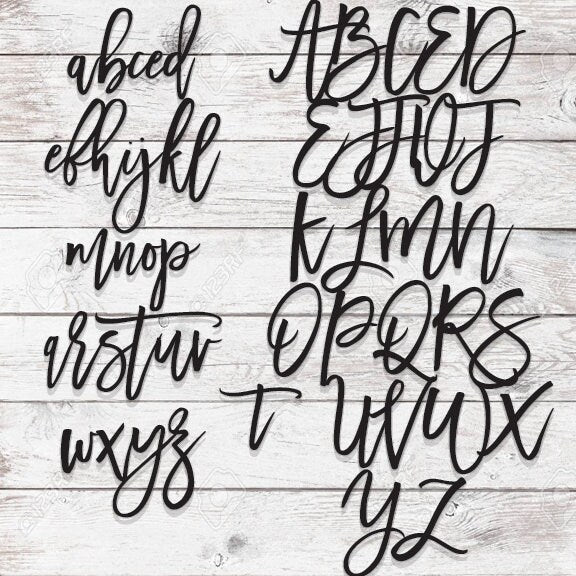 abced
efhijkl
mnop
qrstuv
wxyz
ABCED
KLMN
OPQRS
T UVWX
YZ